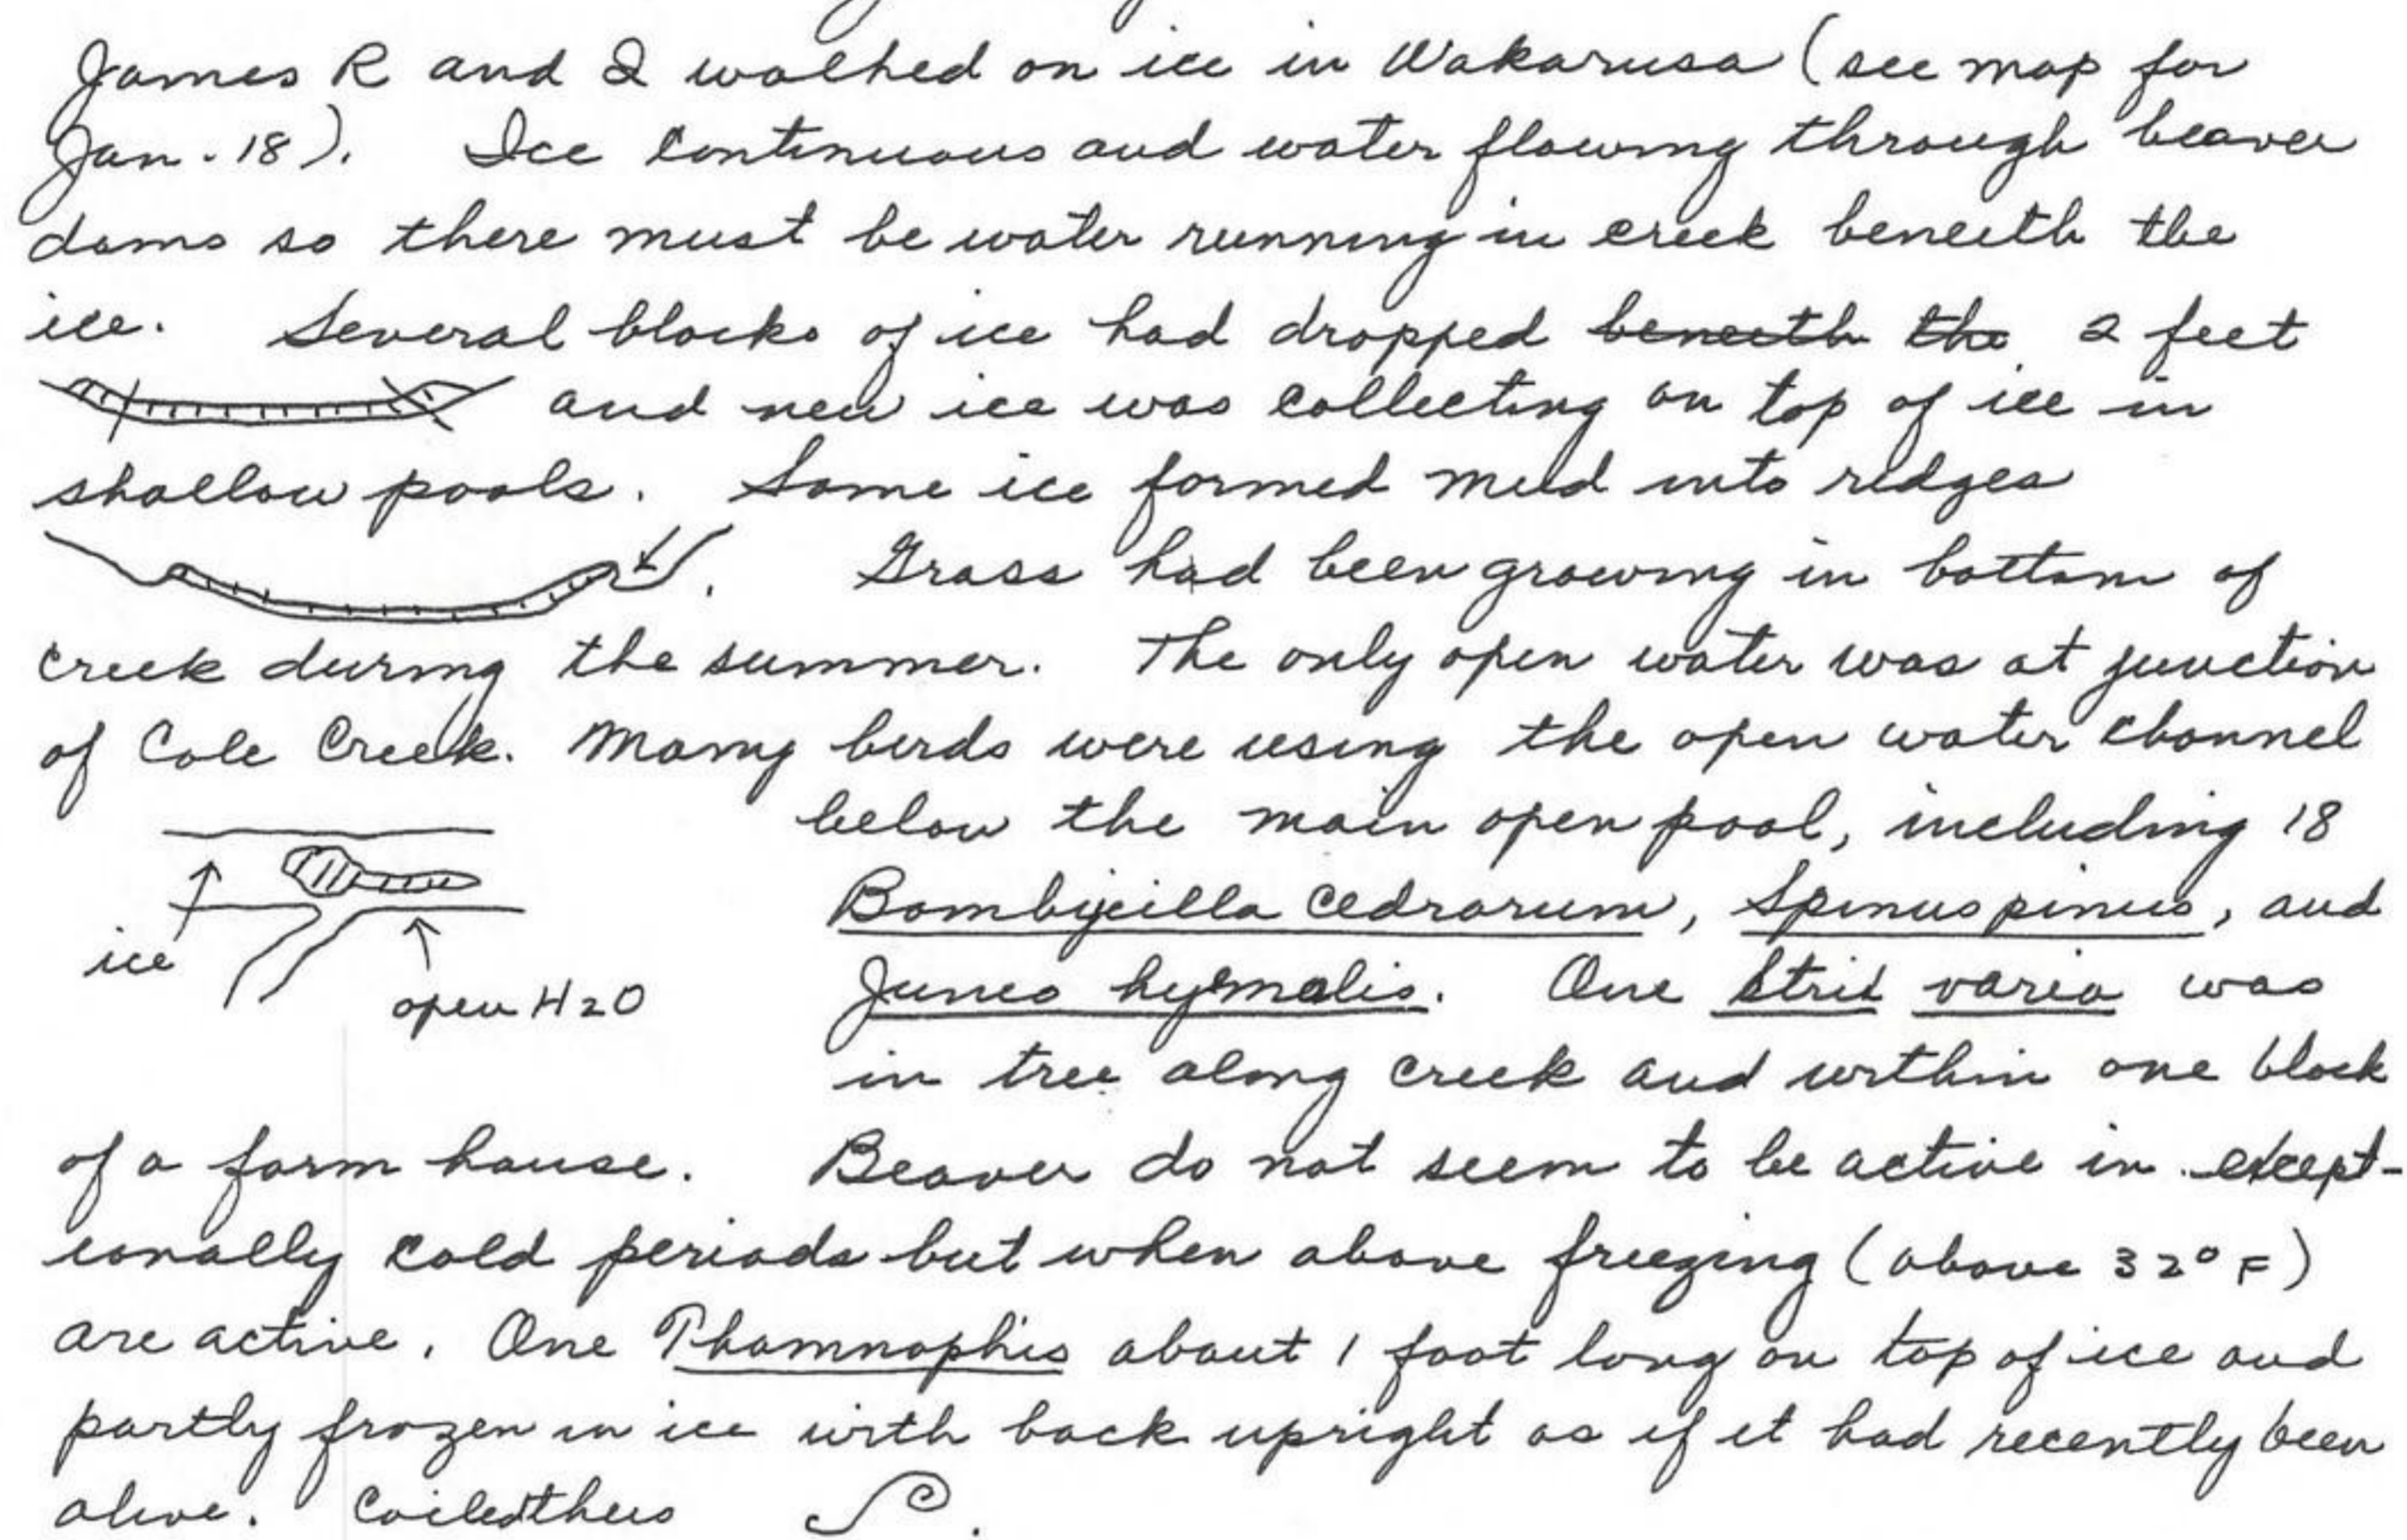 James R and I walked on ice in Wakarusa (see map for
Jan. 18). Ice continuous and water flowing through beaver
dams so there must be water running in creek beneeth the
ice. Several blocks of ice had dropped beneeth the 2 feet
and new ice was collecting on top of ice in
shallow pools. Some ice formed mud into ridges
. Grass had been growing in bottom of
creek during the summer. The only open water was at junction
of Cole Creek. Many birds were using the open water channel
below the main open pool, including 18
Bombycilla cedrorum, Spinus pinus, and
ice
open H2O
Junco hyemalis. One Strix varia was
in tree along creek and within one block
of a farm house. Beaver do not seem to be active in except-
ionally cold periods but when above freezing (above 32° F)
are active. One Thamnophis about 1 foot long on top of ice and
partly frozen in ice with back upright as if it had recently been
alive. Coiled thus .